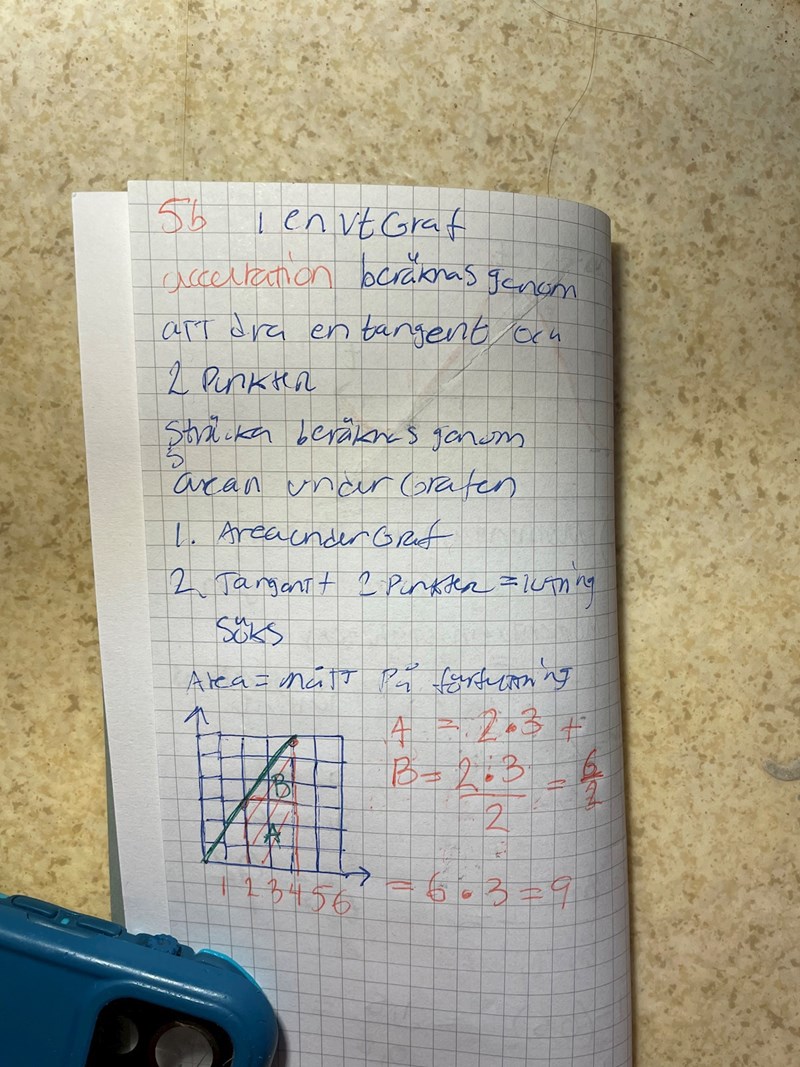 5b i en vt Graf
acceleration beräknas genom
att dra en tangent och
2 Punkter
Sträcka beräknas genom
s
arean under Grafen
1. Area under Graf
2. Tangent + 2 Punkter = lutning
söks
Area = mått På förflyttning
A = 2·3 +
B = 2·3 / 2 = 6/2
B
A
1 2 3 4 5 6
= 6·3 = 9